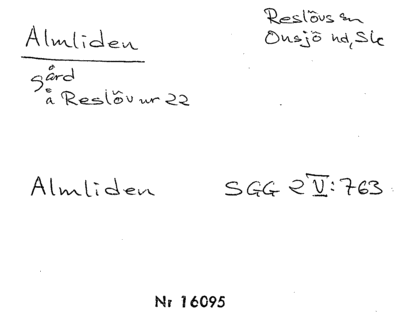 Almliden
Reslövs sn
Onsjö hd, Sk
gård
å Reslöv nr 22
Almliden SGG 2 V: 763
Nr 16095